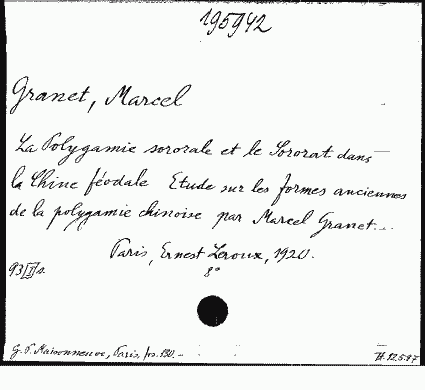 195942
Granet, Marcel
La Polygamie sororale et le Sororat dans
la Chine féodale Etude sur les formes anciennes
de la polygamie chinoise par Marcel Granet...
Paris, Ernest Leroux, 1920.
8°
93
G. P. Maisonneuve, Paris, frs. 130.-